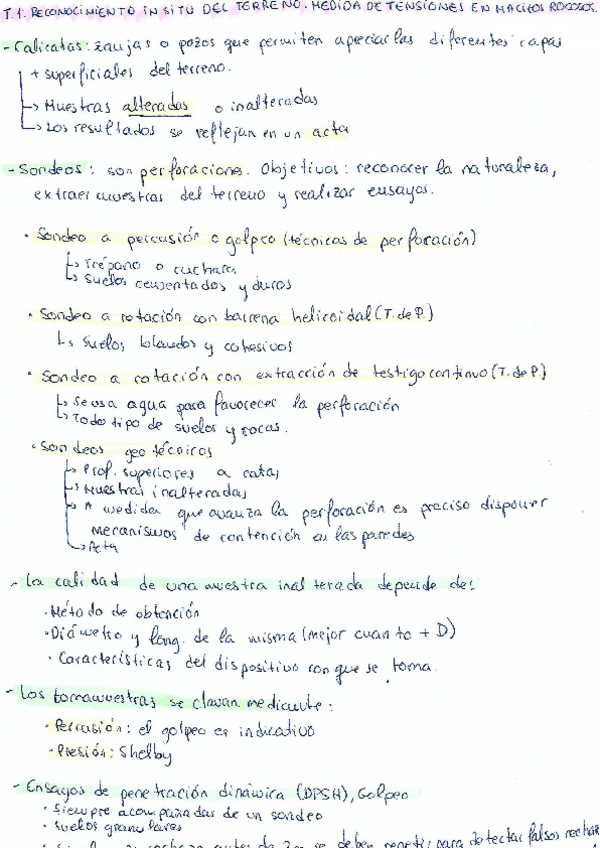 T.1. RECONOCIMIENTO IN SITU DEL TERRENO. MEDIDA DE TENSIONES EN MACIZOS ROCOSOS.
- Calicatas: zanjas o pozos que permiten apreciar las diferentes capas
+ superficiales del terreno.
↳ Muestras alteradas o inalteradas
↳ Los resultados se reflejan en un acta
- Sondeos: son perforaciones. Objetivos: reconocer la naturaleza,
extraer muestras del terreno y realizar ensayos.
• Sondeo a percusión o golpeo (técnicas de perforación)
↳ Trépano o cuchara
↳ Suelos cementados y duros
• Sondeo a rotación con barrena helicoidal (T. de P.)
↳ Suelos blandos y cohesivos
• Sondeo a rotación con extracción de testigo continuo (T. de P)
↳ Se usa agua para favorecer la perforación
↳ Todo tipo de suelos y rocas.
• Sondeos geotécnicos
↳ Prof. superiores a catas
↳ Muestras inalteradas
↳ A medida que avanza la perforación es preciso disponer
mecanismos de contención en las paredes
↳ Acta
- La calidad de una muestra inalterada depende de:
• Método de obtención
• Diámetro y long. de la misma (mejor cuanto + D)
• Características del dispositivo con que se toma.
- Los tomamuestras se clavan mediante:
• Percusión: el golpeo es indicativo
• Presión: Shelby
- Ensayos de penetración dinámica (DPSH), Golpeo
• Siempre acompañadas de un sondeo
• Suelos granulares
se deben repetir para detectar falsos rechaz